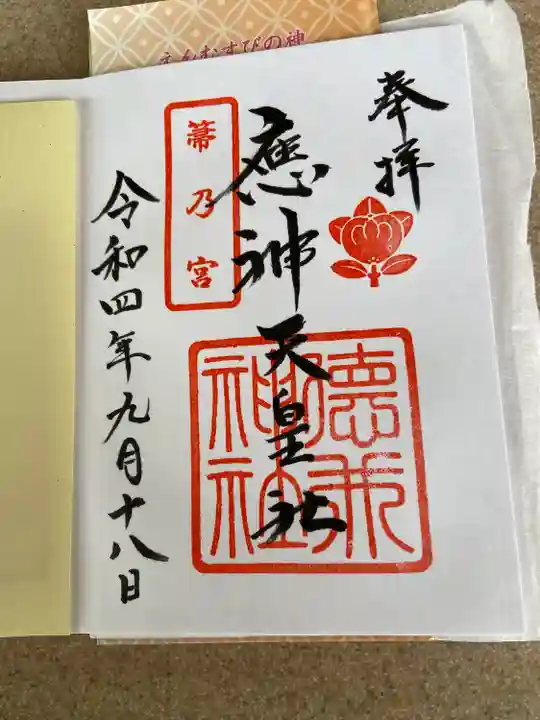 えんむすびの神
奉拝
應神天皇社
箒乃宮
令和四年九月十八日